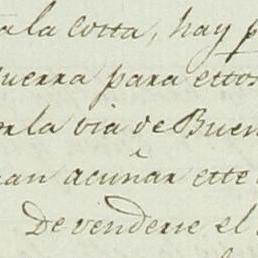 a la costa, hay p
uerra para estos
or la via de Buen
an acuñar este
De venderse el